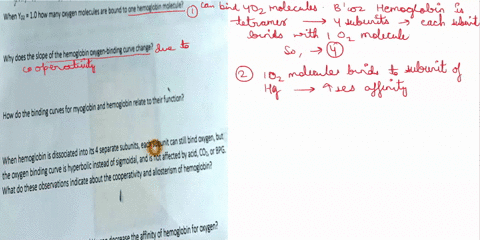 When YO2 = 1.0 how many oxygen molecules are bound to one hemoglobin molecule?
Why does the slope of the hemoglobin oxygen-binding curve change? due to
cooperativity
How do the binding curves for myoglobin and hemoglobin relate to their function?
When hemoglobin is dissociated into its 4 separate subunits, each subunit can still bind oxygen, but
the oxygen binding curve is hyperbolic instead of sigmoidal, and is not affected by acid, CO2, or BPG.
What do these observations indicate about the cooperativity and allosterism of hemoglobin?
decrease the affinity of hemoglobin for oxygen?
① can bind 4O2 molecules. B'coz Hemoglobin is
tetramer → 4 subunits → each subunit
binds with 1 O2 molecule
So, → ④
② 1O2 molecules binds to subunit of
Hg → ↑ses affinity